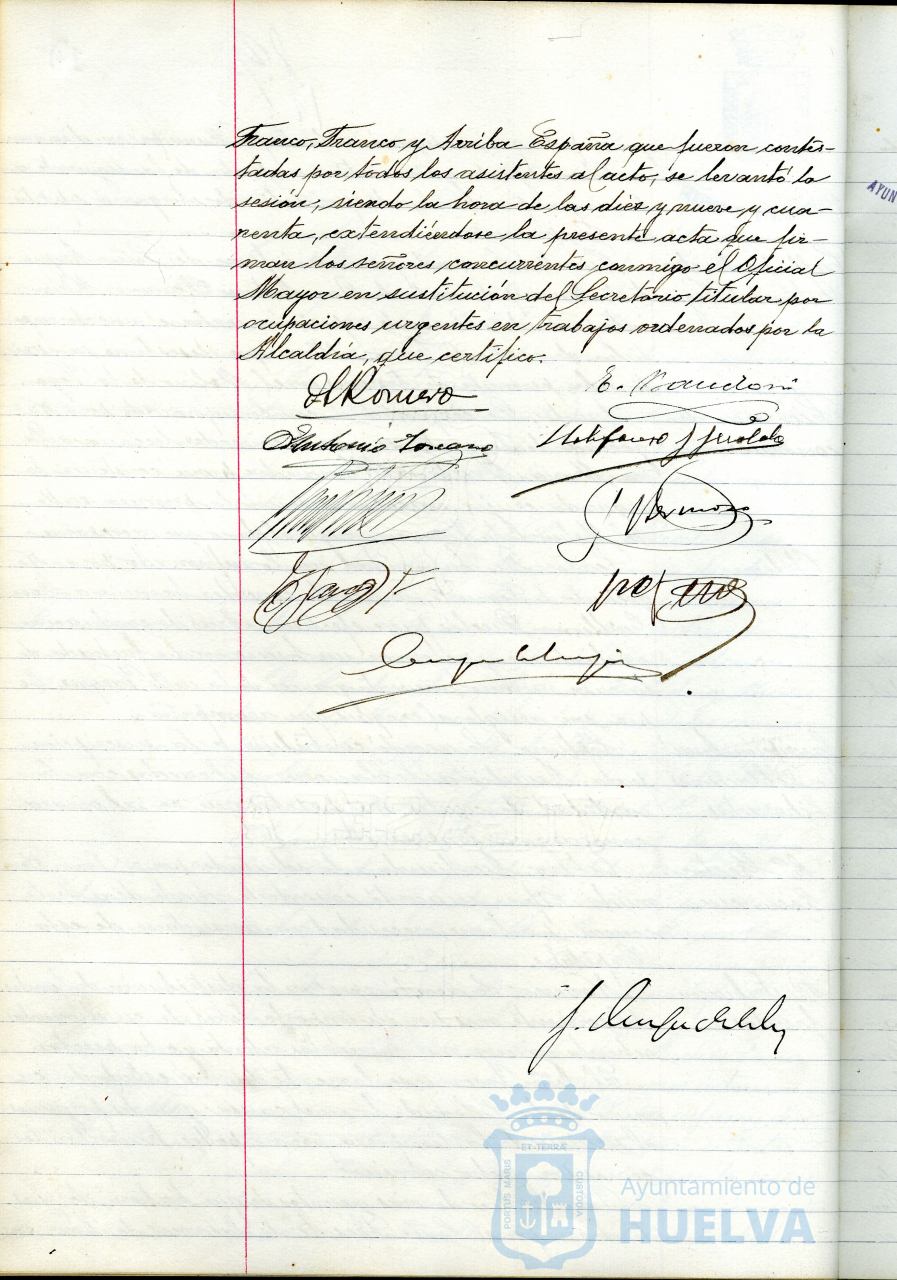 Franco, Franco y Arriba España que fueron contes-
tadas por todos los asistentes al acto, se levantó la
sesión, siendo la hora de las diez y nueve y cua-
renta, extendiéndose la presente acta que fir-
man los señores concurrentes conmigo el Oficial
Mayor en sustitución del Secretario titular por
ocupaciones urgentes en trabajos ordenados por la
Alcaldía, que certifico.
Romero
E.
Antonio
AYUN
PORTUS MARIS
ET TERRÆ
CUSTODIA
Ayuntamiento de
HUELVA